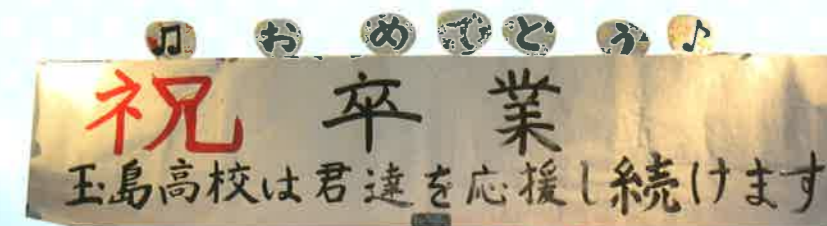 ♫おめでとう♪
祝卒業
玉島高校は君達を応援し続けます